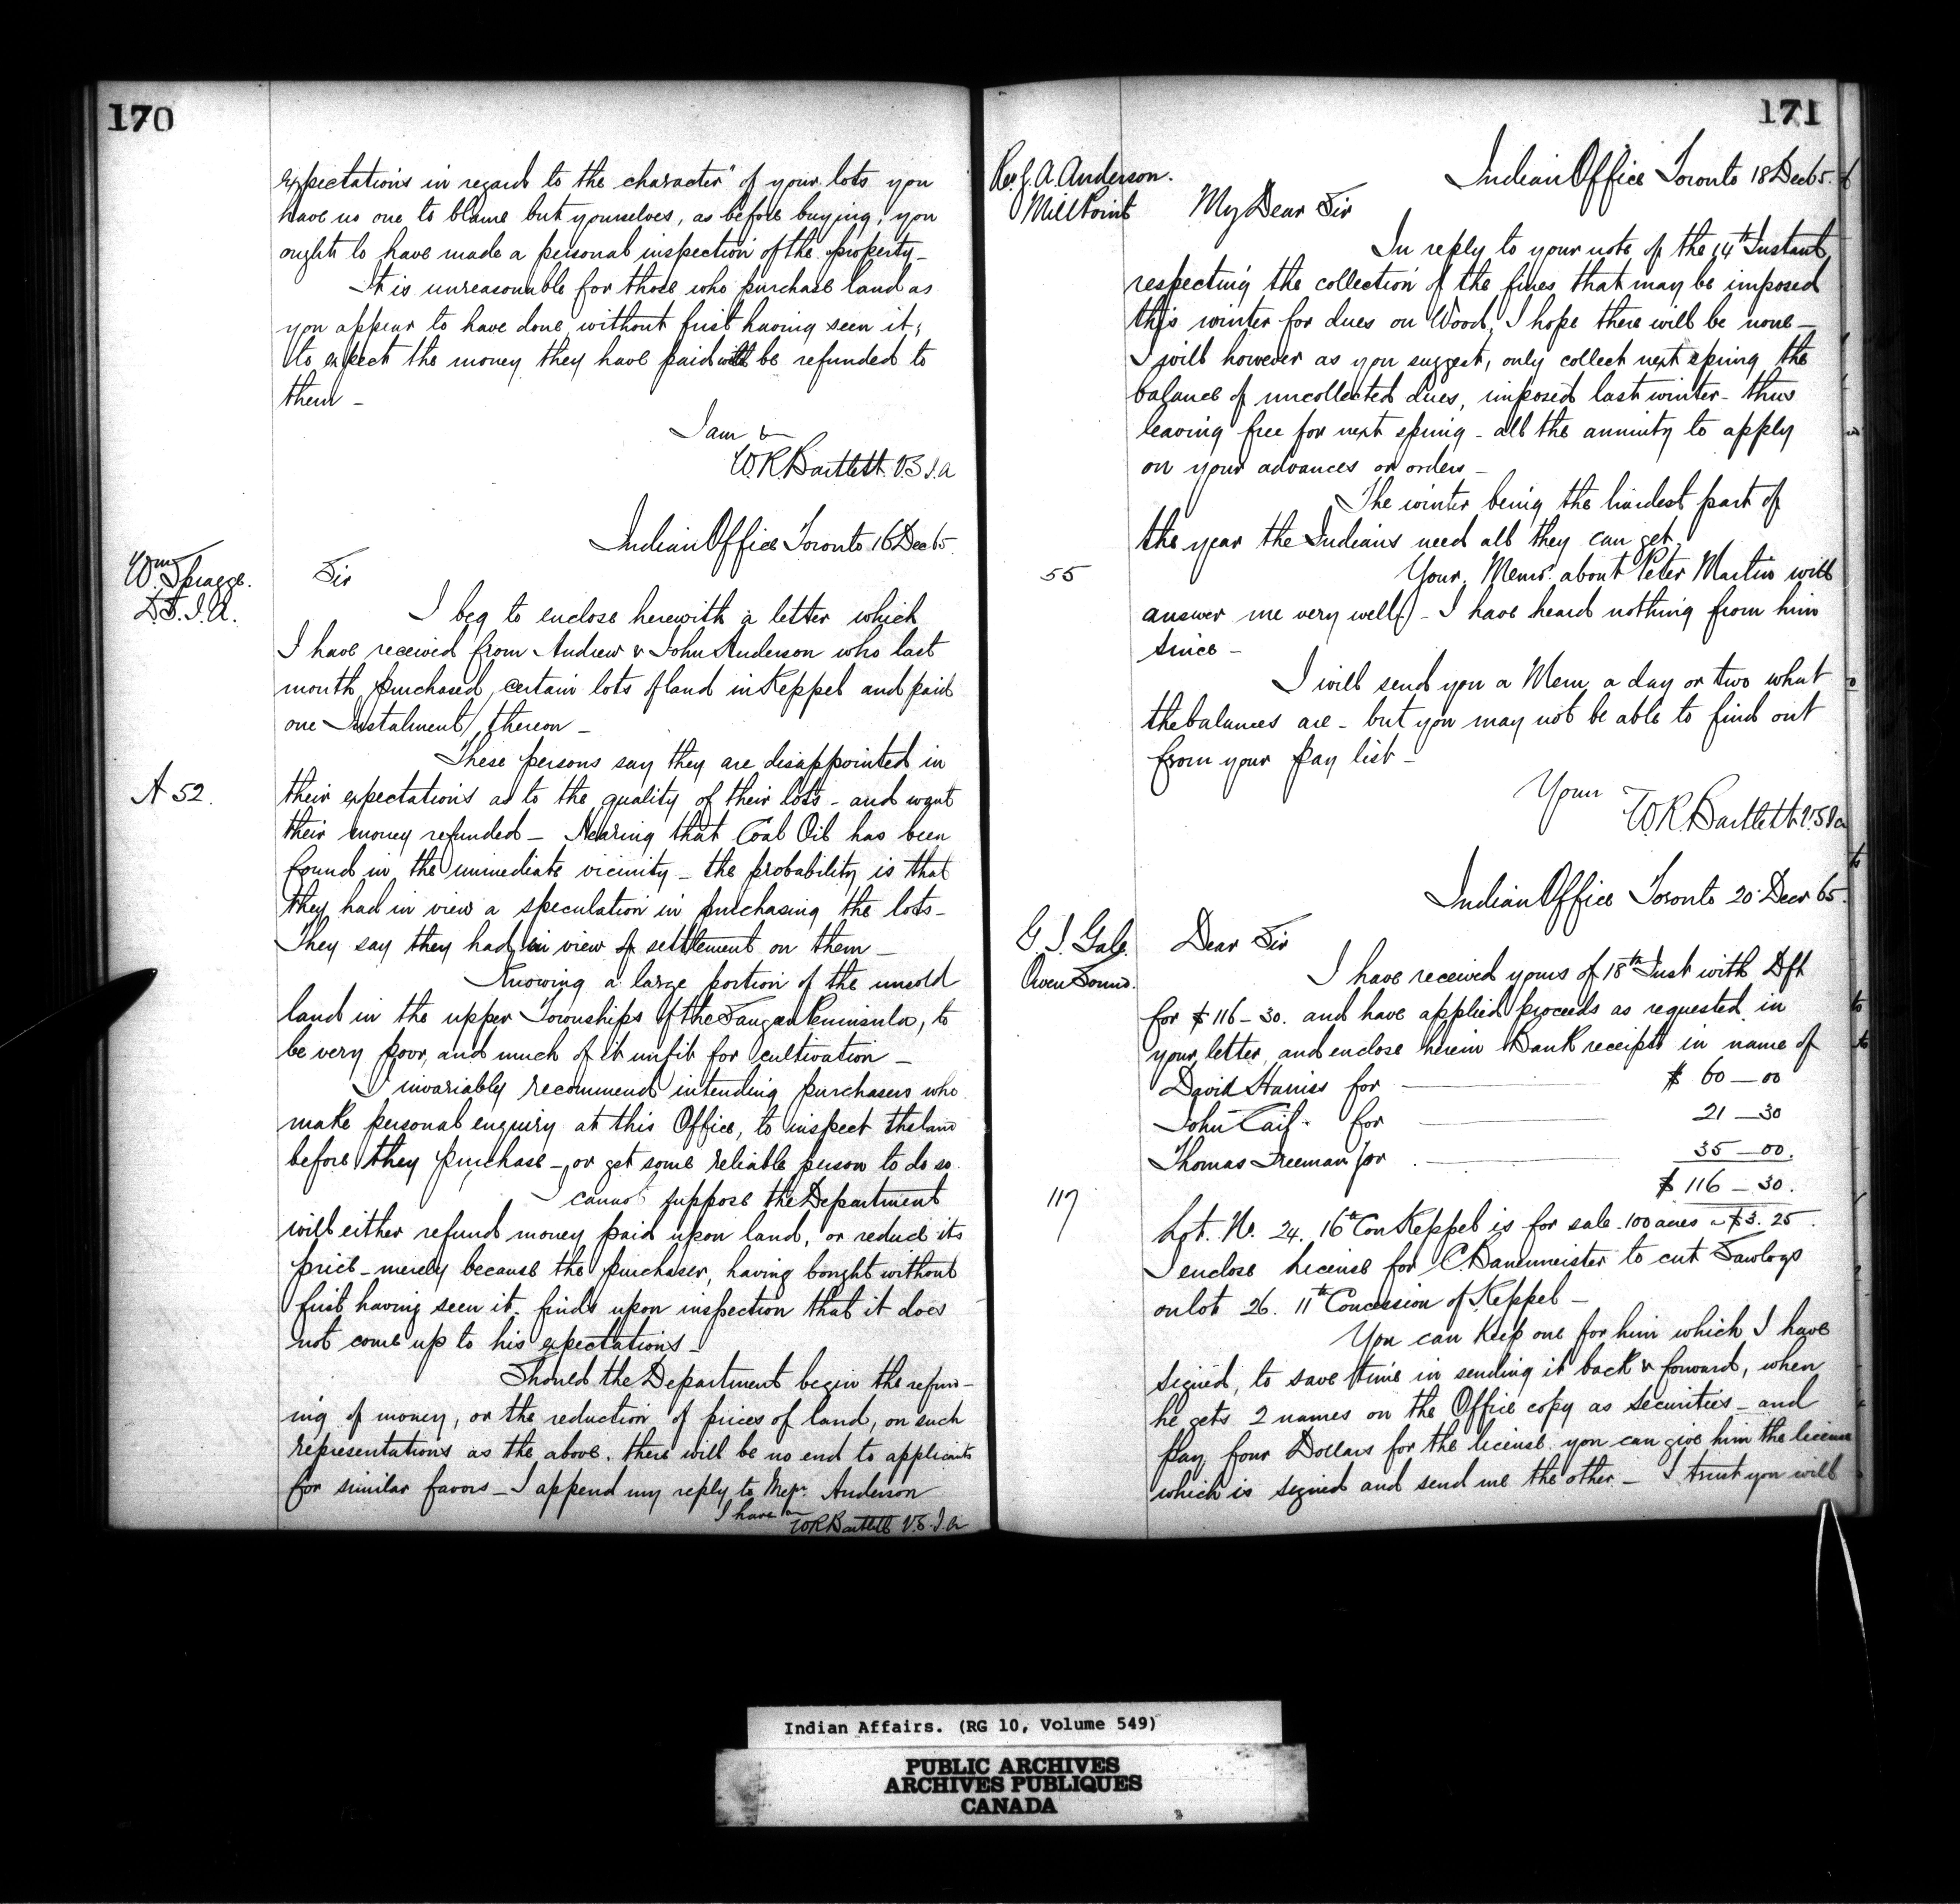 170
expectations in regard to the character of your lots you
have no one to blame but yourselves, as before buying, you
ought to have made a personal inspection of the property_
It is unreasonable for those who purchase land as
you appear to have done without first having seen it;
to expect the money they have paid will be refunded to
them _
I am &
W.R.Bartlett. V.S.I.A
Indian Office Toronto 16 Dec 65.
Wm
W. Spragge.
D.S.I.A.
Sir
I beg to enclose herewith a letter which
I have received from Andrew & John Anderson who last
month purchased, certain lots of land in Keppel and paid
one Instalment thereon _
These persons say they are disappointed in
A 52.
their expectations as to the quality of their lots _ and want
their money refunded _ Hearing that Coal Oil has been
found in the immediate vicinity _ the probability is that
they had in view a speculation in purchasing the lots_
They say they had in view of settlement on them _
Knowing a large portion of the unsold
land in the upper Townships of the Saugeen Peninsula, to
be very poor, and much of it unfit for cultivation _
I invariably recommend intending purchasers who
make personal enquiry at this Office, to inspect the land
before they purchase _ or get some reliable person to do so.
I cannot suppose the Department
will either refund money paid upon land, or reduce its
price _ merely because the purchaser, having bought without
first having seen it. finds upon inspection that it does
not come up to his expectations _
Should the Department begin the refund-
ing of money, or the reduction of prices of land, on such
representations as the above. there will be no end to applicants
for similar favors _ I append my reply to Messrs. Anderson
I have &
W.R.Bartlett V.S.I.A
171
Indian Office Toronto 18 Dec 65.
Rev. G. A. Anderson.
Mill Point
My Dear Sir
In reply to your note of the 14th Instant,
respecting the collection of the fines that may be imposed
this winter for dues on Wood, I hope there will be none _
I will however as you suggest, only collect next spring the
balance of uncollected dues, imposed last winter _ thus
leaving free for next spring _ all the annuity to apply
on your advances or orders _
The winter being the hardest part of
the year the Indians need all they can get.
55
Your Memo. about Peter Martin will
answer me very well _ I have heard nothing from him
since _
I will send you a Mem a day or two what
the balances are _ but you may not be able to find out
from your Pay list _
Yours
W.R.Bartlett V.S.I.A
Indian Office Toronto 20 Decr 65.
G. J. Gale.
Owen Sound.
Dear Sir
I have received yours of 18th Inst with Dft
for $116-30. and have applied proceeds as requested in
your letter and enclose herein Bank receipts in name of
David Harriss for $ 60 _ 00
John for 21 _ 30
Thomas Freeman for 35 _ 00.
$ 116 _ 30.
117
Lot. No. 24. 16th Con Keppel is for sale. 100 acres $3.25.
I enclose License for C. to cut Sawlogs
on lot 26. 11th Concession of Keppel _
You can keep one for him which I have
signed, to save time in sending it back & forward, when
he gets 2 names on the Office copy as securities _ and
pay four Dollars for the license you can give him the license
which is signed and send me the other _ I trust you will
Indian Affairs. (RG 10, Volume 549)
PUBLIC ARCHIVES
ARCHIVES PUBLIQUES
CANADA